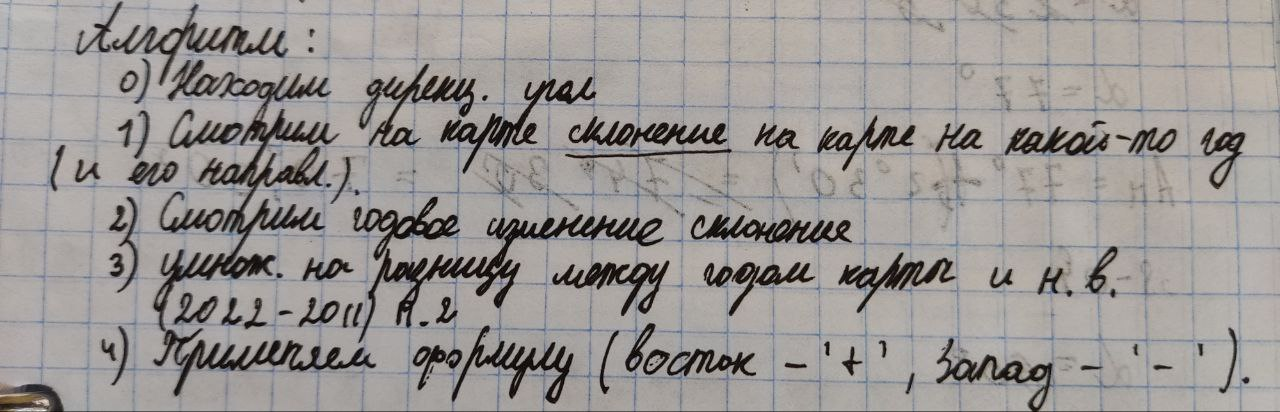 Алгоритм:
0) Находим дирекц. угол
1) Смотрим на карте склонение на карте на какой-то год
(и его направл.).
2) Смотрим годовое изменение склонение
3) умнож. на разницу между годом карты и н. в.
(2022-2011) п.2
4) Применяем формулу (восток - '+', Запад - '-').